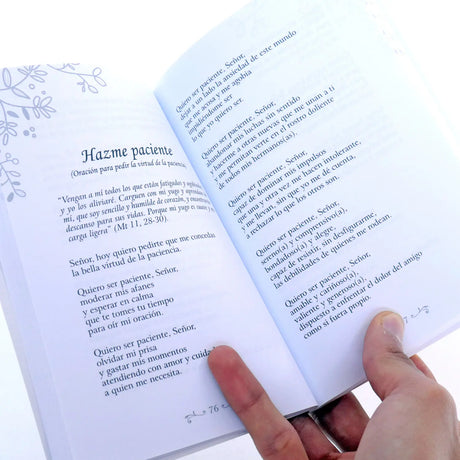 Hazme paciente
(Oración para pedir la virtud de la paciencia)
“Vengan a mí todos los que están fatigados y
y yo los aliviaré. Carguen con mi yugo y aprendan
mí, que soy sencillo y humilde de corazón, y encontrarán
descanso para sus vidas. Porque mi yugo es suave y
carga ligera” (Mt 11, 28-30).
Señor, hoy quiero pedirte que me concedas
la bella virtud de la paciencia.
Quiero ser paciente, Señor,
moderar mis afanes
y esperar en calma
que te tomes tu tiempo
para oír mi oración.
Quiero ser paciente, Señor,
olvidar mi prisa
y gastar mis momentos
atendiendo con amor y
a quien me necesita.
76
Quiero ser paciente, Señor,
dejar a un lado la ansiedad de este mundo
que me acusa y me agobia
impidiéndome ser
lo que yo quiero ser.
Quiero ser paciente, Señor,
abandonar mis luchas sin sentido
y hacerme a otras nuevas que me unan a ti
y me permitan verte en el rostro doliente
de todos mis hermanos(as).
Quiero ser paciente, Señor,
capaz de dominar mis impulsos
que una y otra vez me hacen intolerante,
y me llevan, sin que yo me dé cuenta,
a rechazar lo que los otros son.
Quiero ser paciente, Señor,
sereno(a) y comprensivo(a),
bondadoso(a) y alegre,
capaz de resistir, sin desfigurarme,
las debilidades de quienes me rodean.
Quiero ser paciente, Señor,
amable y cariñoso(a),
valiente y generoso(a),
dispuesto a enfrentar el dolor del amigo
como si fuera propio.